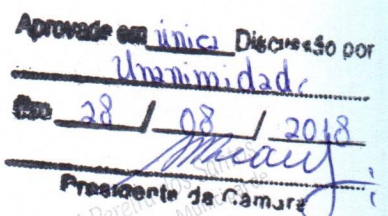 Aprovado em única Discussão por
Unanimidade
Em 28 / 08 / 2018
Presidente da Camara
Pereira dos Santos